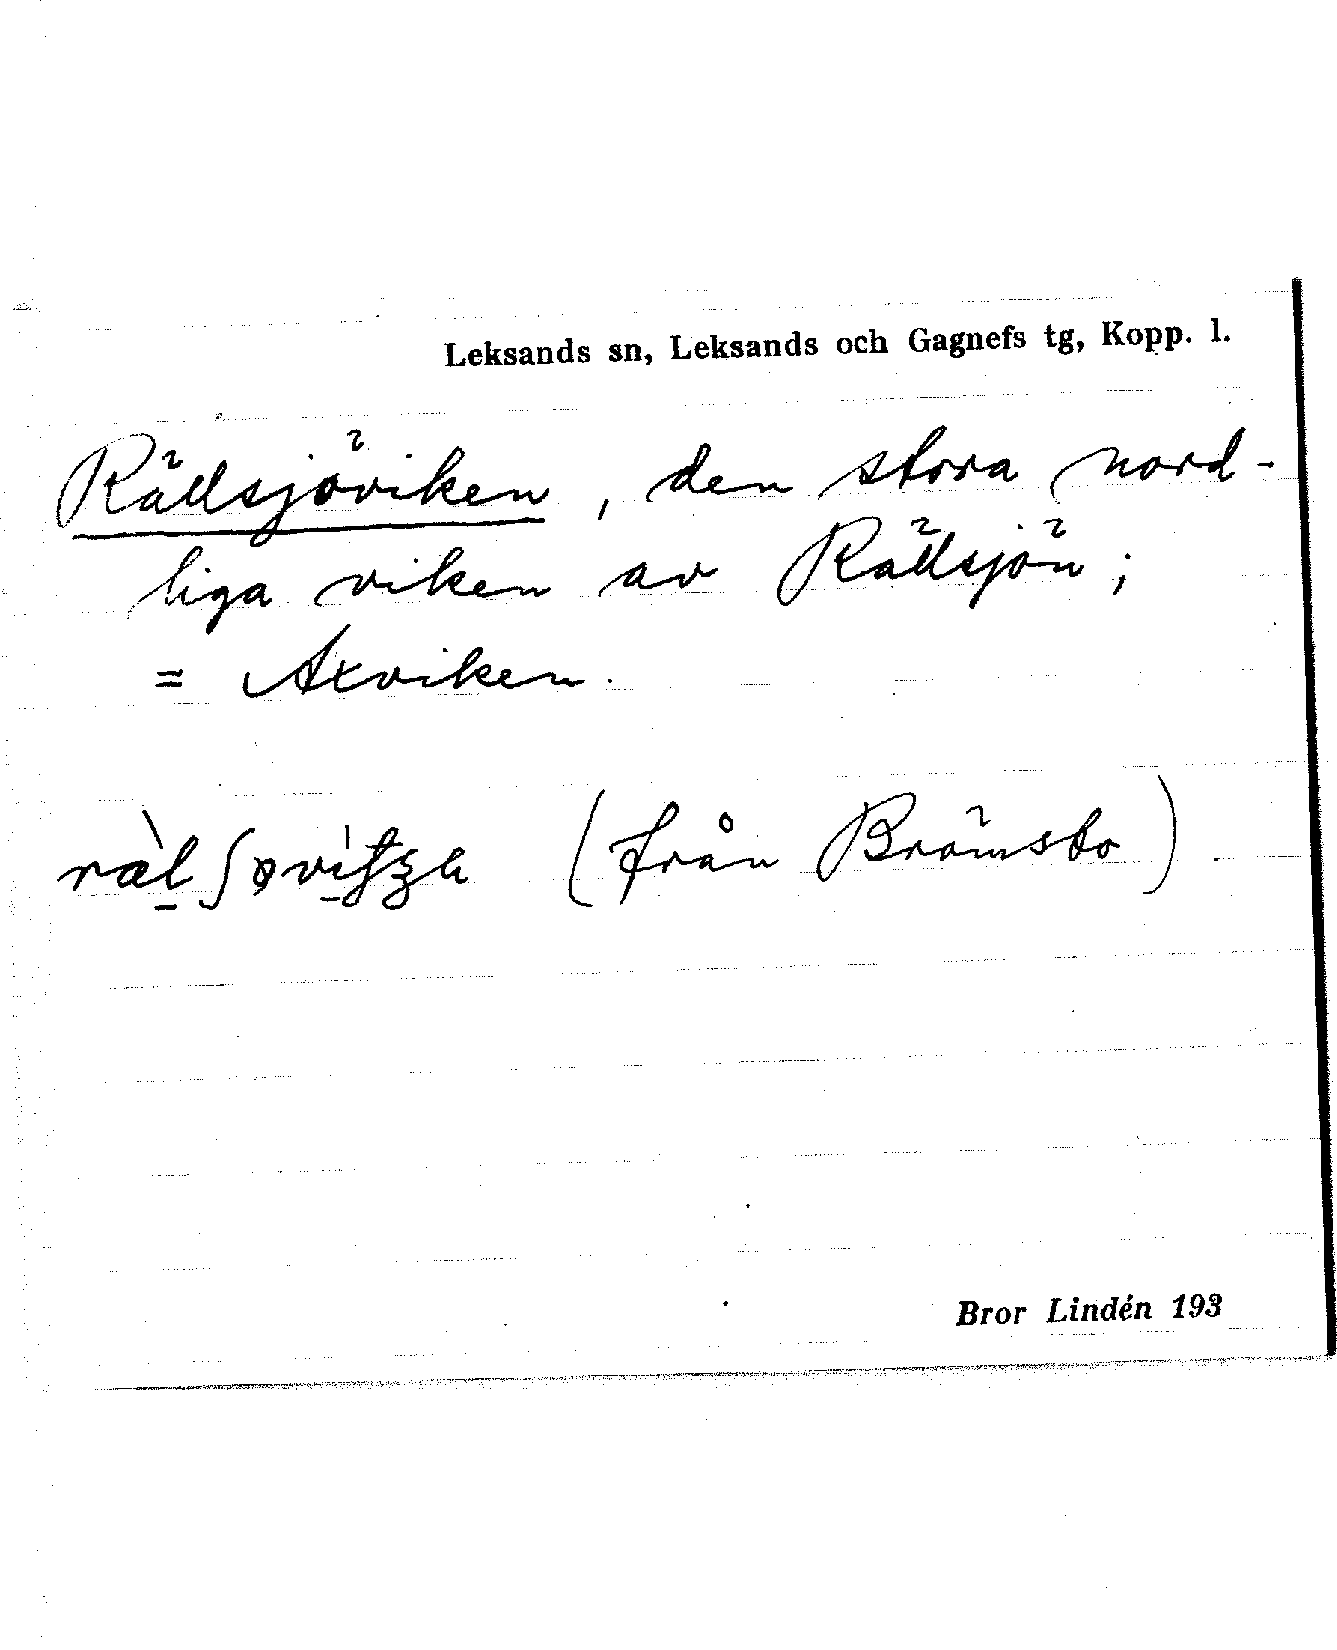 Leksands sn, Leksands och Gagnefs tg, Kopp. l.
Rällsjöviken, den stora nord-
liga viken av Rällsjön;
= Axviken.
(från Brömsbo)
Bror Lindén 193